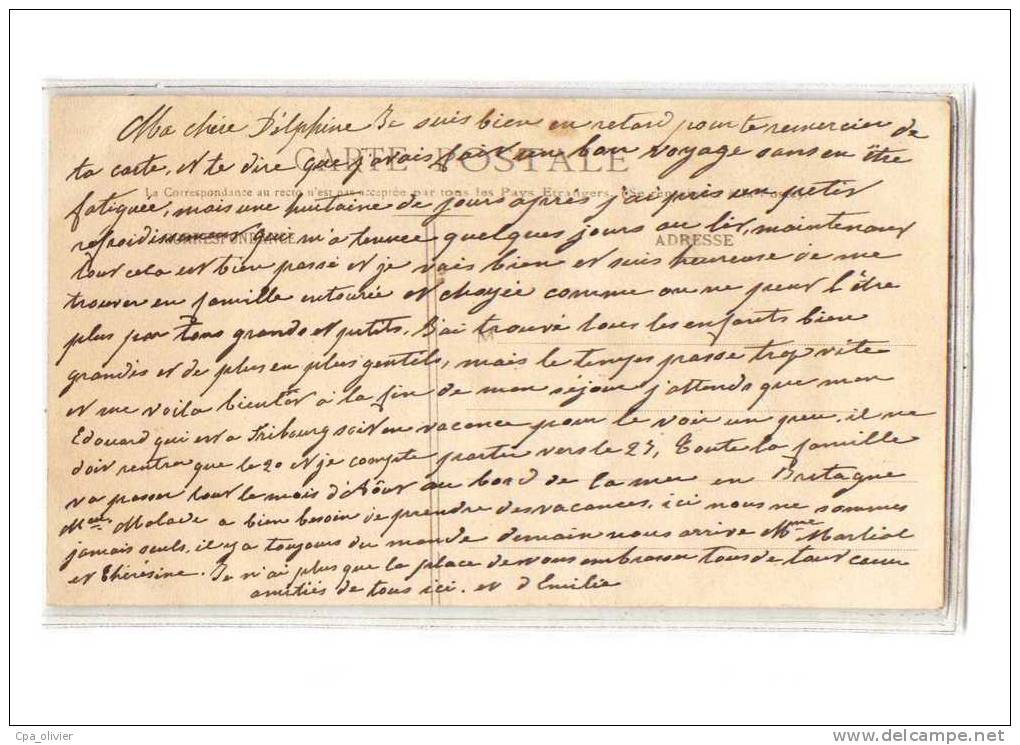 Ma chère Délphine Je suis bien en retard pour te remercier de
ta carte, et te dire que j'avais fait un bon voyage sans en être
CARTE POSTALE
La Correspondance au recto n'est pas acceptée par tous les Pays Etrangers.
fatiguée, mais une huitaine de jours après j'ai pris un petit
refroidissement qui m'a tenue quelques jours au lit, maintenant
CORRESPONDANCE
ADRESSE
tout cela est bien passé et je vais bien et suis heureuse de me
trouver en famille entourée et choyée comme on ne peut l'être
plus par tous grands et petits. J'ai trouvé tous les enfants bien
M
grandis et de plus en plus gentils, mais le temps passe trop vite
et me voila bientôt à la fin de mon séjour j'attends que mon
Edouard qui est a Fribourg soit en vacance pour le voir un peu. il ne
doit rentrer que le 20 et je compte partir vers le 25, Toute la famille
va passer tout le mois d'Aôut au bord de la mer en Bretagne
Malade a bien besoin de prendre des vacances. ici nous ne sommes
jamais seuls. il y a toujours du monde demain nous arrive Mme Martial
et Thérésine. Je n'ai plus que la place de vous embrasser tous de tout cœur
amitiés de tous ici. et d'Emilie
Cpa_olivier
www.delcampe.net